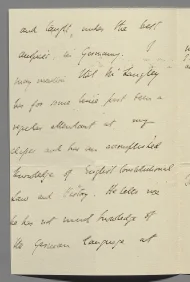 and taught, under the best
auspices in Germany. I
may mention that Mr Langley
has for some time past been a
regular attendant at my
classes and has an accomplished
knowledge of English Constitutional
Law and History. He tells me
he has not much knowledge of
the German Language at